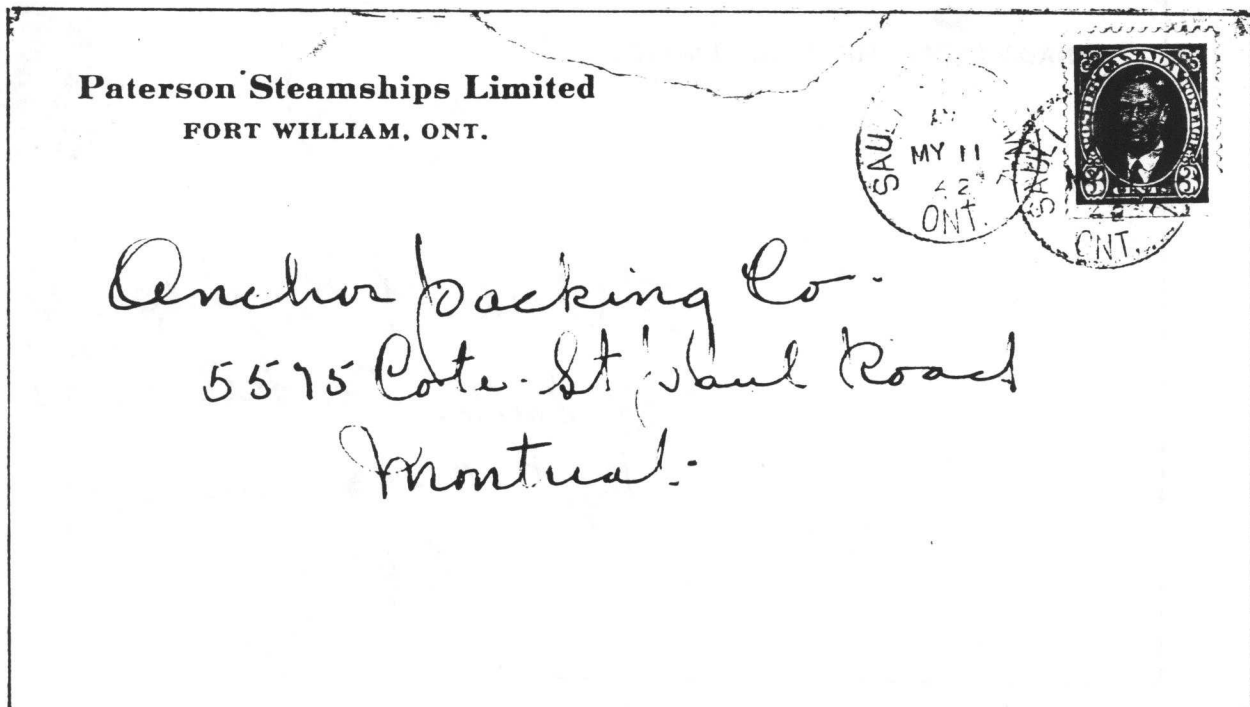 Paterson Steamships Limited
FORT WILLIAM, ONT.
SAULT
MY 11
42
ONT.
SAULT
ONT.
POSTES CANADA POSTAGE
3 CENTS 3
Anchor Packing Co.
5575 Cote St Paul Road
Montreal.